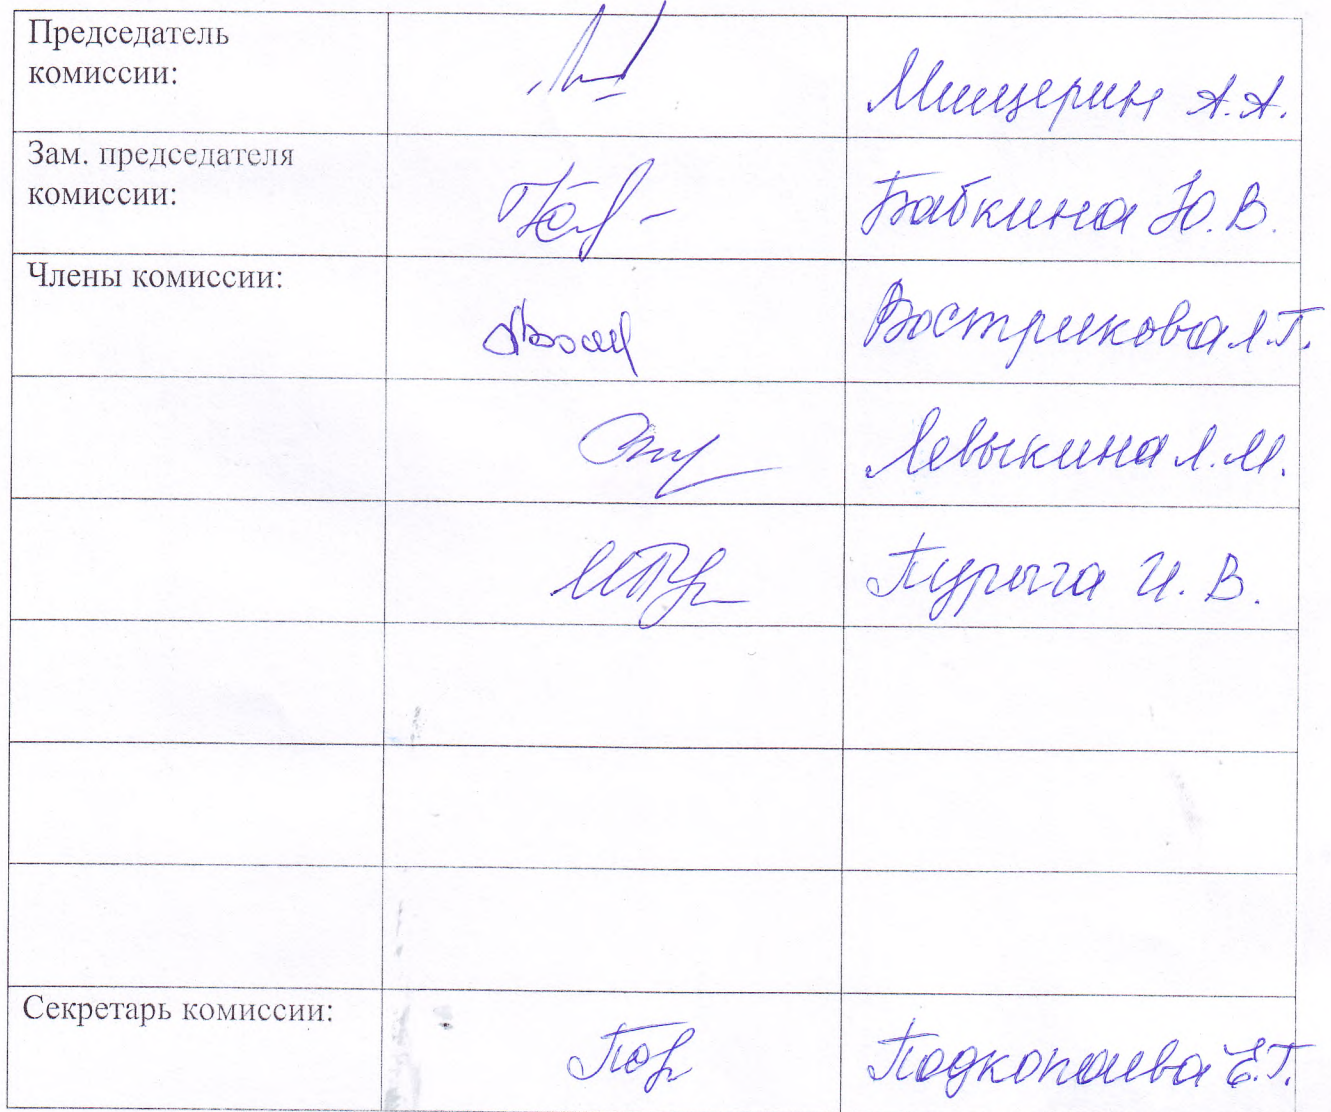 Председатель
комиссии:
Мищерин А.А.
Зам. председателя
комиссии:
Бабкина Ю.В.
Члены комиссии:
Вострикова Л.П.
Левыкина Л.М.
Пурыга И.В.
Секретарь комиссии:
Подкопаева Е.Г.